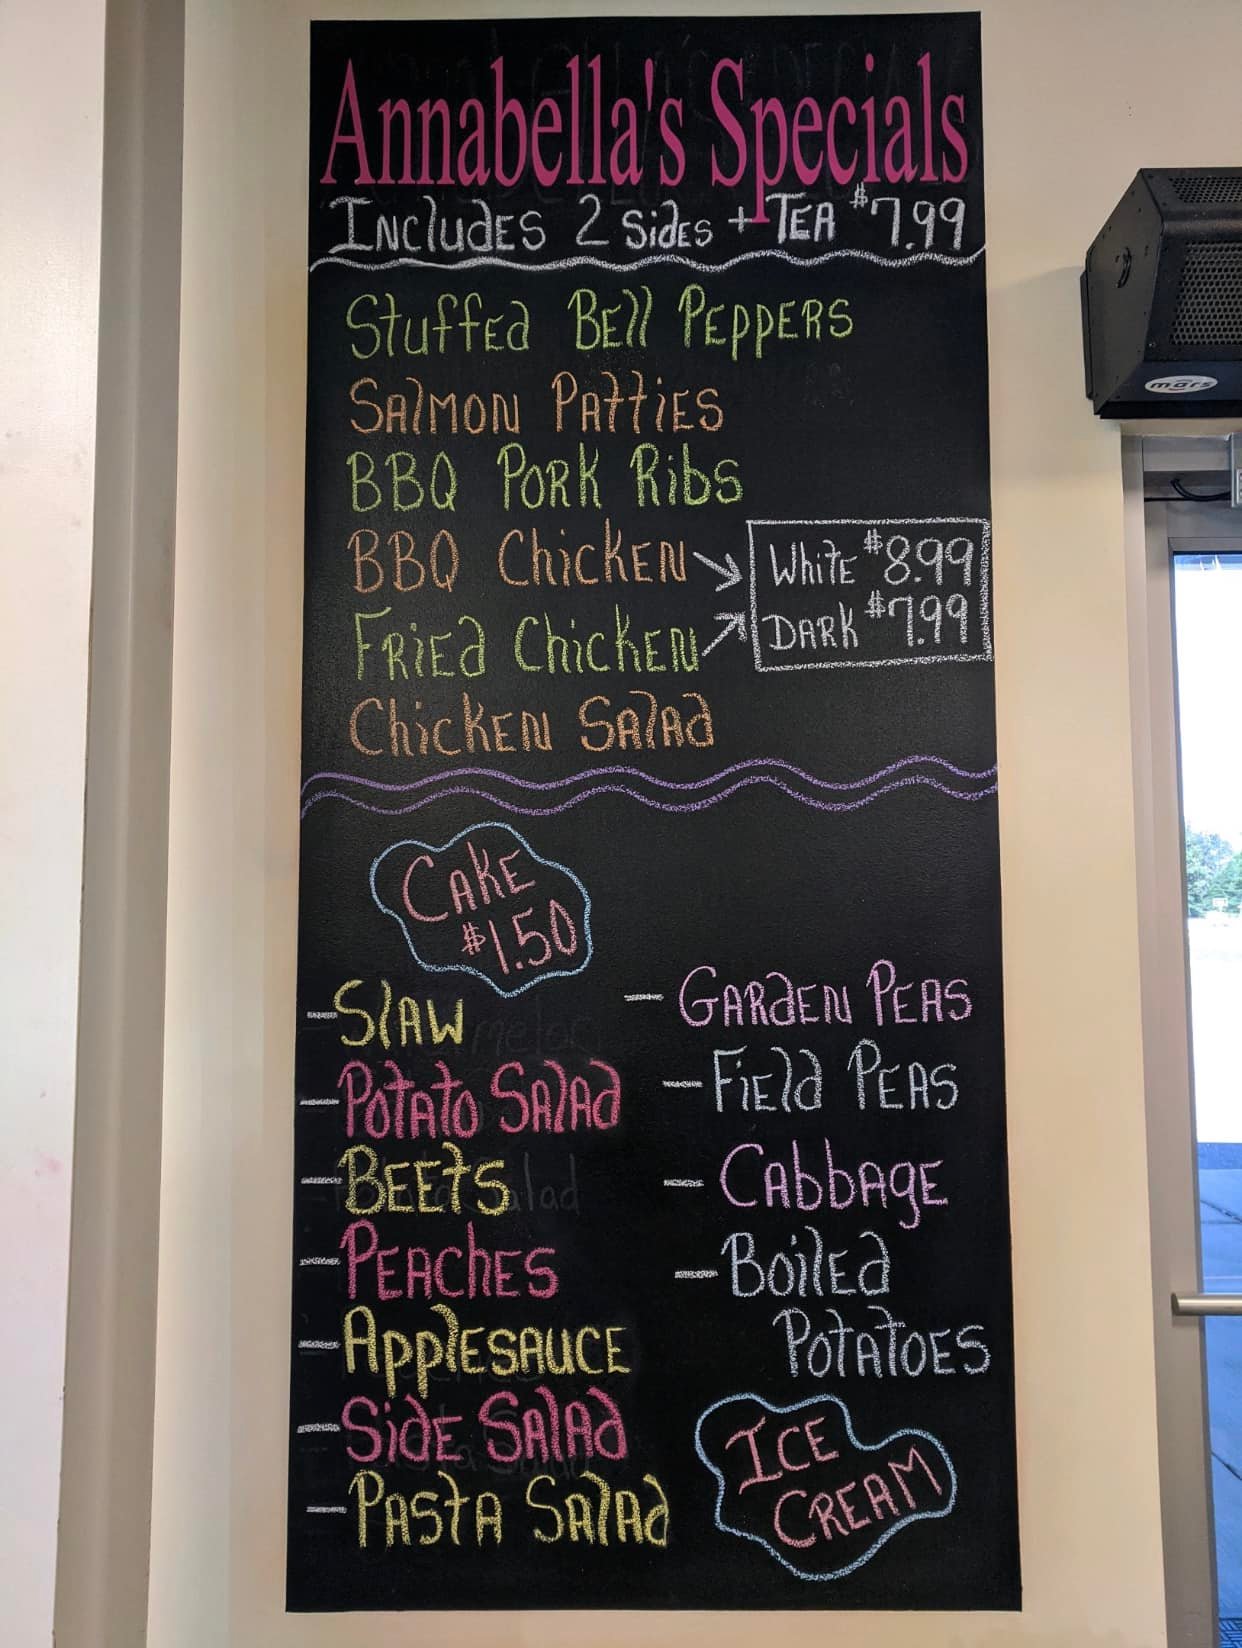 Annabella's Specials
Includes 2 Sides + Tea $7.99
Stuffed Bell Peppers
Salmon Patties
BBQ Pork Ribs
BBQ Chicken
White $8.99
Dark $7.99
Fried Chicken
Chicken Salad
Cake
$1.50
- Slaw
- Potato Salad
- Beets
- Peaches
- Applesauce
- Side Salad
- Pasta Salad
- Garden Peas
- Field Peas
- Cabbage
- Boiled
Potatoes
Ice
Cream
mars